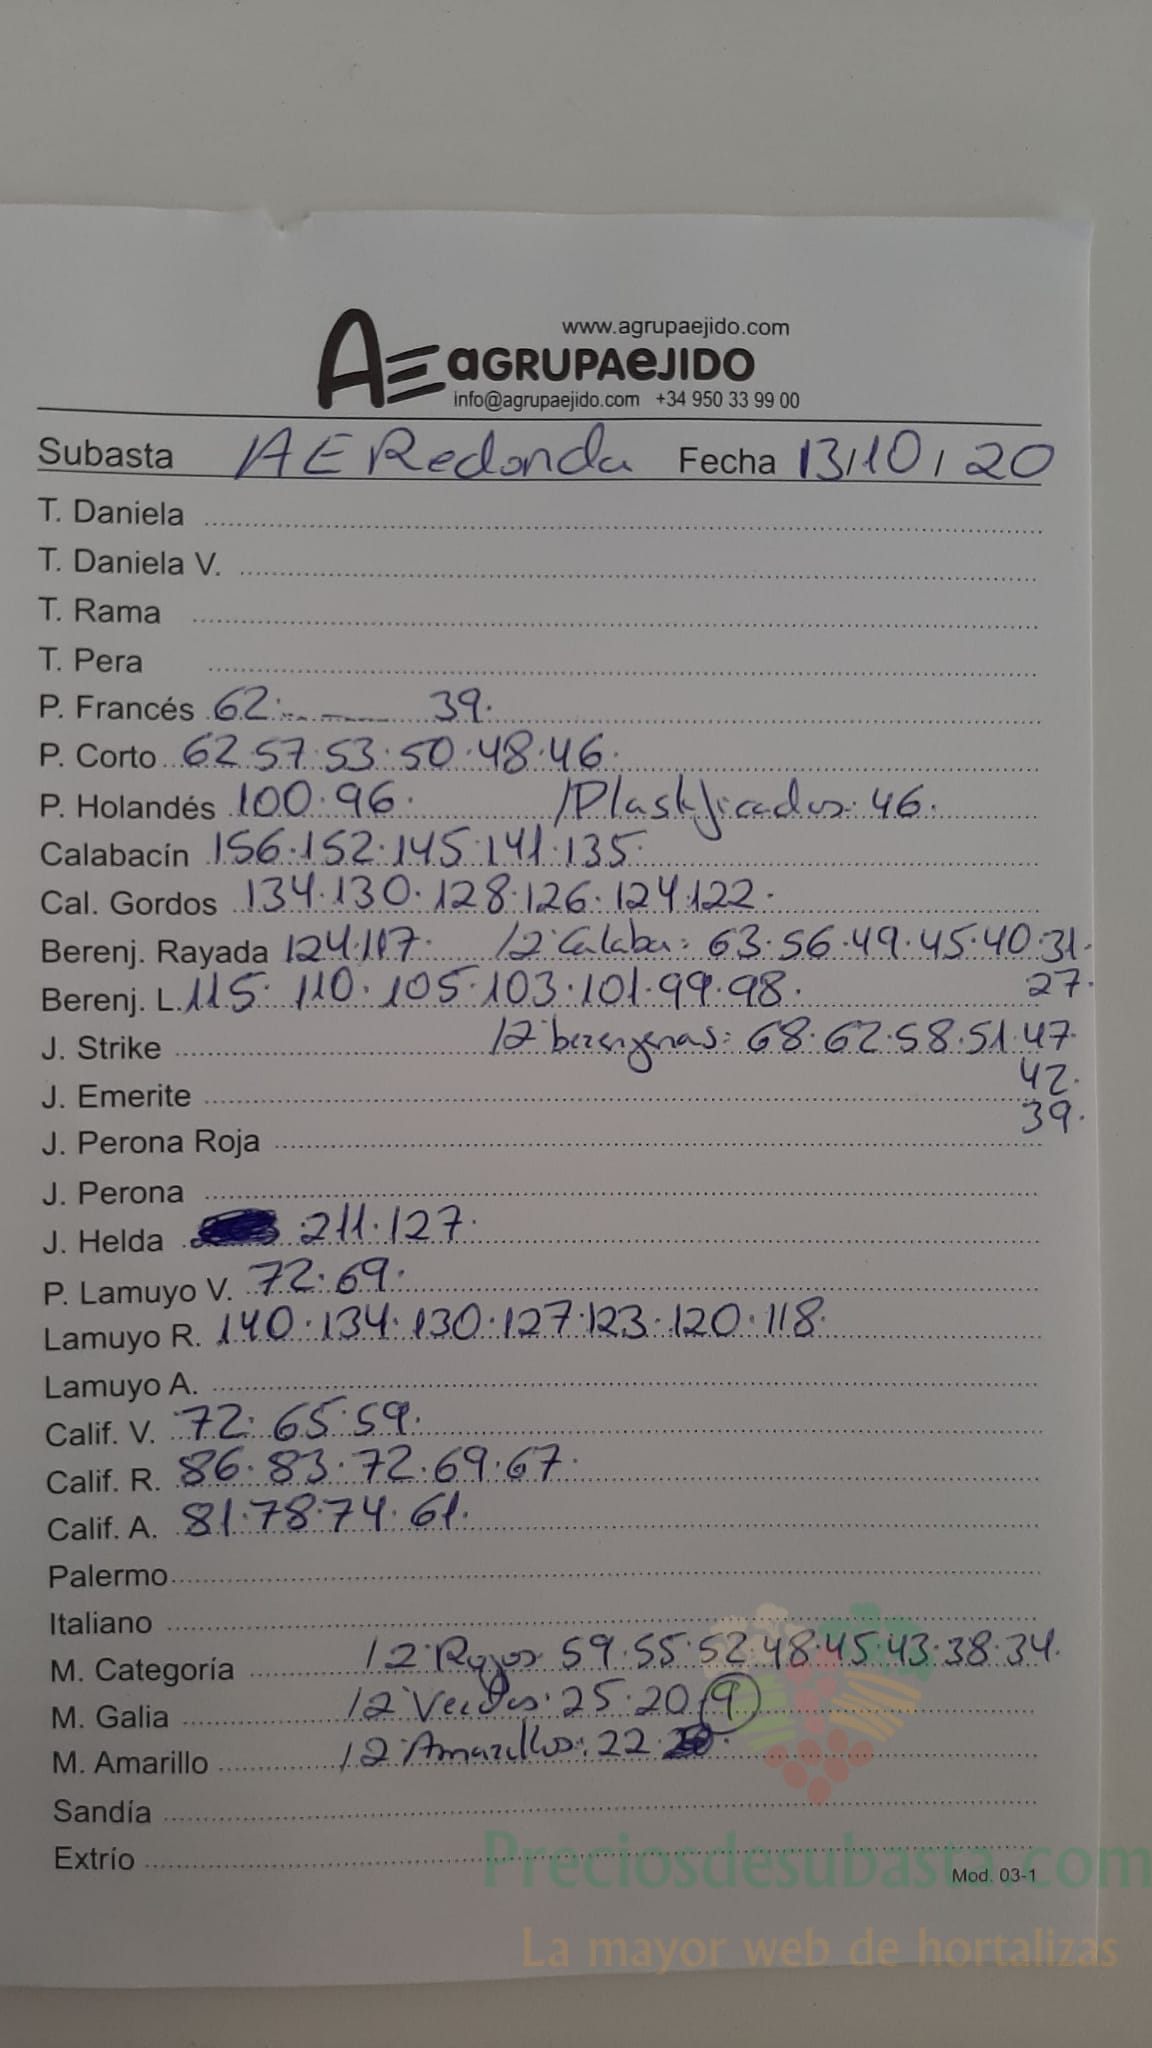 www.agrupaejido.com
AE aGRUPAeJIDO
info@agrupaejido.com +34 950 33 99 00
Subasta AE Redonda Fecha 13/10/20
T. Daniela
T. Daniela V.
T. Rama
T. Pera
P. Francés 62. 39.
P. Corto 62.57.53.50.48.46.
P. Holandés 100.96. /Plastificados: 46.
Calabacín 156.152.145.141.135.
Cal. Gordos 134.130.128.126.124.122.
Berenj. Rayada 124.117. /2ª Calaba: 63.56.49.45.40.31.
27.
Berenj. L. 115. 110. 105.103.101.99.98.
J. Strike /2ª berengenas: 68.62.58.51.47.
42.
J. Emerite
39.
J. Perona Roja
J. Perona
J. Helda 211.127.
P. Lamuyo V. 72.69.
Lamuyo R. 140.134.130.127.123.120.118.
Lamuyo A.
Calif. V. 72. 65.59.
Calif. R. 86.83.72.69.67.
Calif. A. 81.78.74.61.
Palermo
Italiano
M. Categoría /2ª Rojos: 59.55.52.48.45.43.38.34.
M. Galia /2ª Verdes: 25.20. 9
M. Amarillo /2ª Amarillos: 22.
Sandía
Extrío
Mod. 03-1
Preciosdesubasta.com
La mayor web de hortalizas